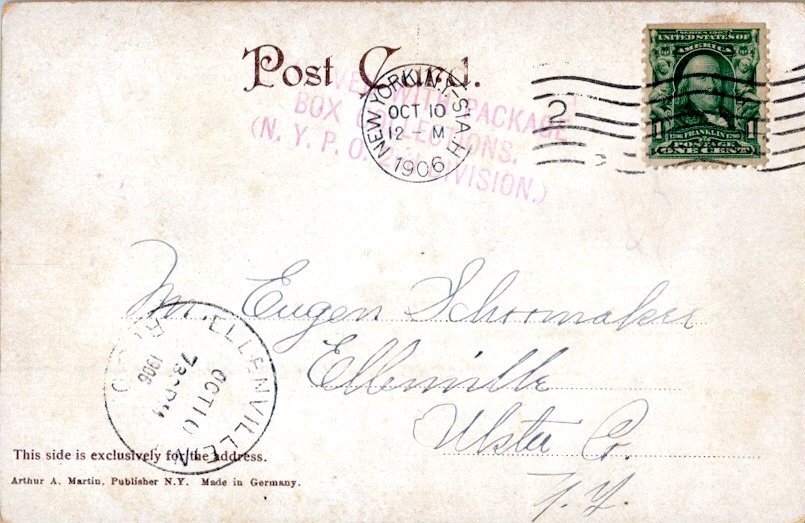 Post Card.
SERIES 1902
UNITED STATES OF
AMERICA
FRANKLIN
POSTAGE
ONE CENT
NEW YORK, N.Y.-STA. H
OCT 10
12-M
1906
2
WITH PACKAGE
BOX COLLECTIONS.
(N. Y. P. O. DIVISION.)
Mr. Eugen Schoonmaker
Ellenville
Ulster Co.
N.Y.
ELLENVILLE
OCT 10
730PM
1906
This side is exclusively for the address.
Arthur A. Martin, Publisher N.Y. Made in Germany.